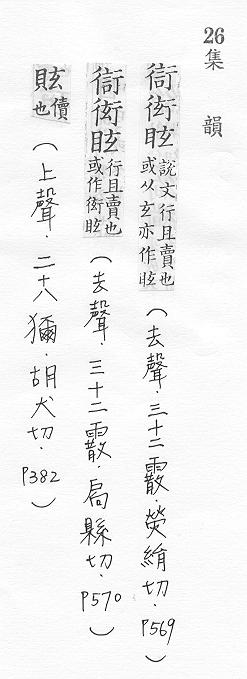 26 集韻
𧗳衒眩 說文行且賣也或从玄亦作眩 (去聲．三十二霰．熒絹切．P569)
𧗳衒眩 行且賣也或作衒眩 (去聲．三十二霰．扃縣切．P570)
債也 (上聲．二十八獮．胡犬切．P382)